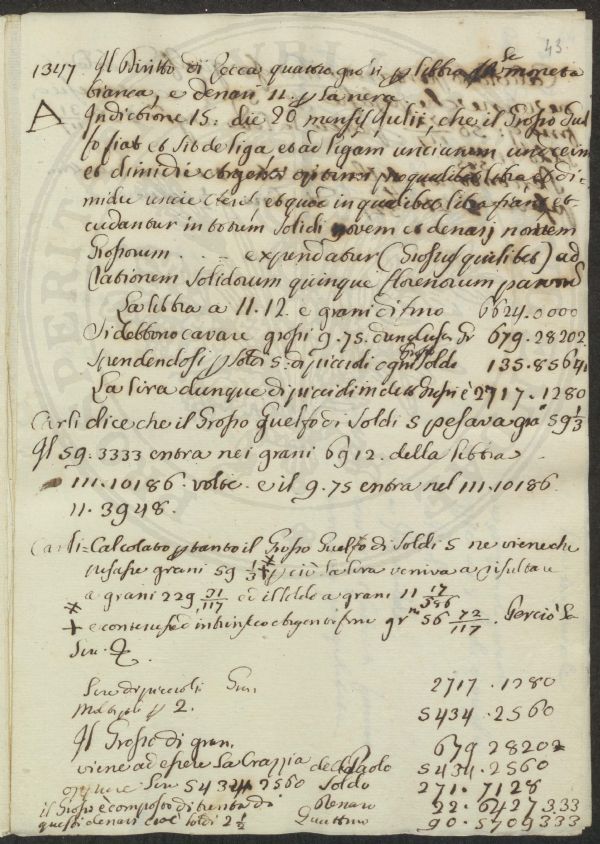 43
1347 Il Diritto di Zecca quattro grossi p libbra se moneta
bianca, e denari 11. p la nera
A Indictione 15: die 20 mensis Iulii, che il Grosso Guel
fo fiat et sit de liga et ad ligam unciarum undecim
et dimidie argenti optimi pro qualibet libra et di
midie uncie et quod in qualibet libra fiant et
cudantur in totum solidi novem et denarj novem
Grossorum . . . expendatur (Grossus quilibet) ad
rationem solidorum quinque florenorum parvor
La libbra a 11.12. e grani di fino 6624.0000
Si debbono cavare grossi 9.75. dunque son di 679.28202
Spendendosi p soldi 5: di piccioli ogni Soldo 135.85641
La lira dunque di piccioli in detti Grossi è 2717.1280
Carli dice che il Grosso Guelfo di Soldi 5 pesava grani 59 1/3
Il 59.3333 entra nei grani 6912. della libbra
111.10186. volte. e il 9.75 entra nel 111.10186
11.3948.
Carli: Calcolato p tanto il Grosso Guelfo di Soldi 5 ne viene che
pesasse grani 59 1/3 p ciò la lira veniva a risultare
a grani 229 31/117 ed il soldo a grani 11
+ e conteneva d'intrinseco argento fino gr 56 72/117. Perciò la
Lira
Lire di piccioli Gra 2717.1280
p 2. 5434.2560
Il Grosso di gran. 679 28202
viene ad essere la Crazzia del Paolo 5434.2560
oppure Lire 5434.2560 Soldo 271.7128
il Grosso è composto di trenta di Denaro 22.6427333
questi denari cioè soldi 2 1/2 Quattrino 90.5709333